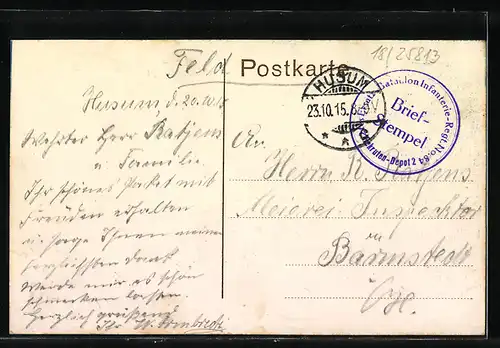 18/25813
Feld Postkarte
HUSUM
23.10.15.
Ersatz Bataillon Infanterie-Regt. No.
Brief-
Stempel
Rekruten-Depot 2
Husum d. 20.10.15
Werhter Herr Ratjens
u Familie.
Ihr schönes Packet mit
Freuden erhalten
u. sage Ihnen meinen
herzlichsten Dank
werde mir es schön
schmecken lassen.
Herzlich grüßend
Ihr W.
An.
Herrn R. Ratjens
Meierei Inspecktor
Barmstedt